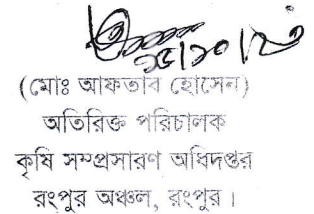 ১৫/১০/২০
(মোঃ আফতাব হোসেন)
অতিরিক্ত পরিচালক
কৃষি সম্প্রসারণ অধিদপ্তর
রংপুর অঞ্চল, রংপুর।